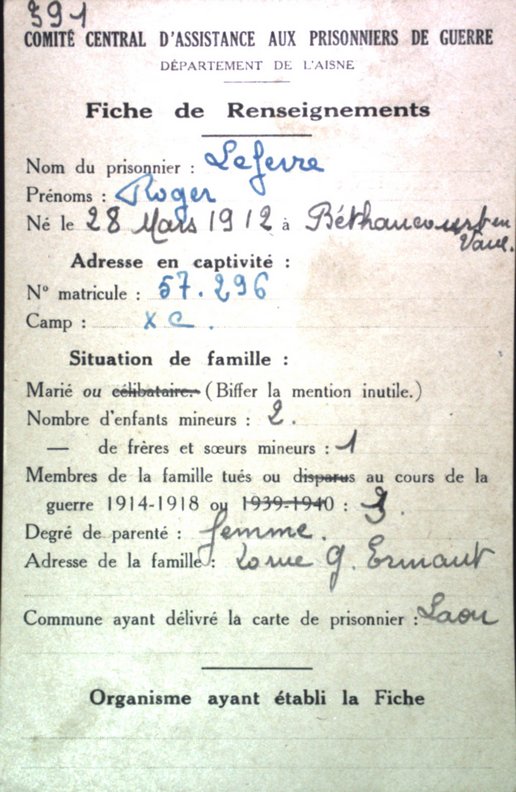 391
COMITÉ CENTRAL D'ASSISTANCE AUX PRISONNIERS DE GUERRE
DÉPARTEMENT DE L'AISNE
Fiche de Renseignements
Nom du prisonnier : Lefevre
Prénoms : Roger
Né le 28 Mars 1912 à Béthancourt en
Vaux.
Adresse en captivité :
N° matricule : 57.296
Camp : X C.
Situation de famille :
Marié ou célibataire. (Biffer la mention inutile.)
Nombre d'enfants mineurs : 2.
— de frères et sœurs mineurs : 1
Membres de la famille tués ou disparus au cours de la
guerre 1914-1918 ou 1939-1940 : 3.
Degré de parenté : femme.
Adresse de la famille : rue G. Ermant
Commune ayant délivré la carte de prisonnier : Laon
Organisme ayant établi la Fiche